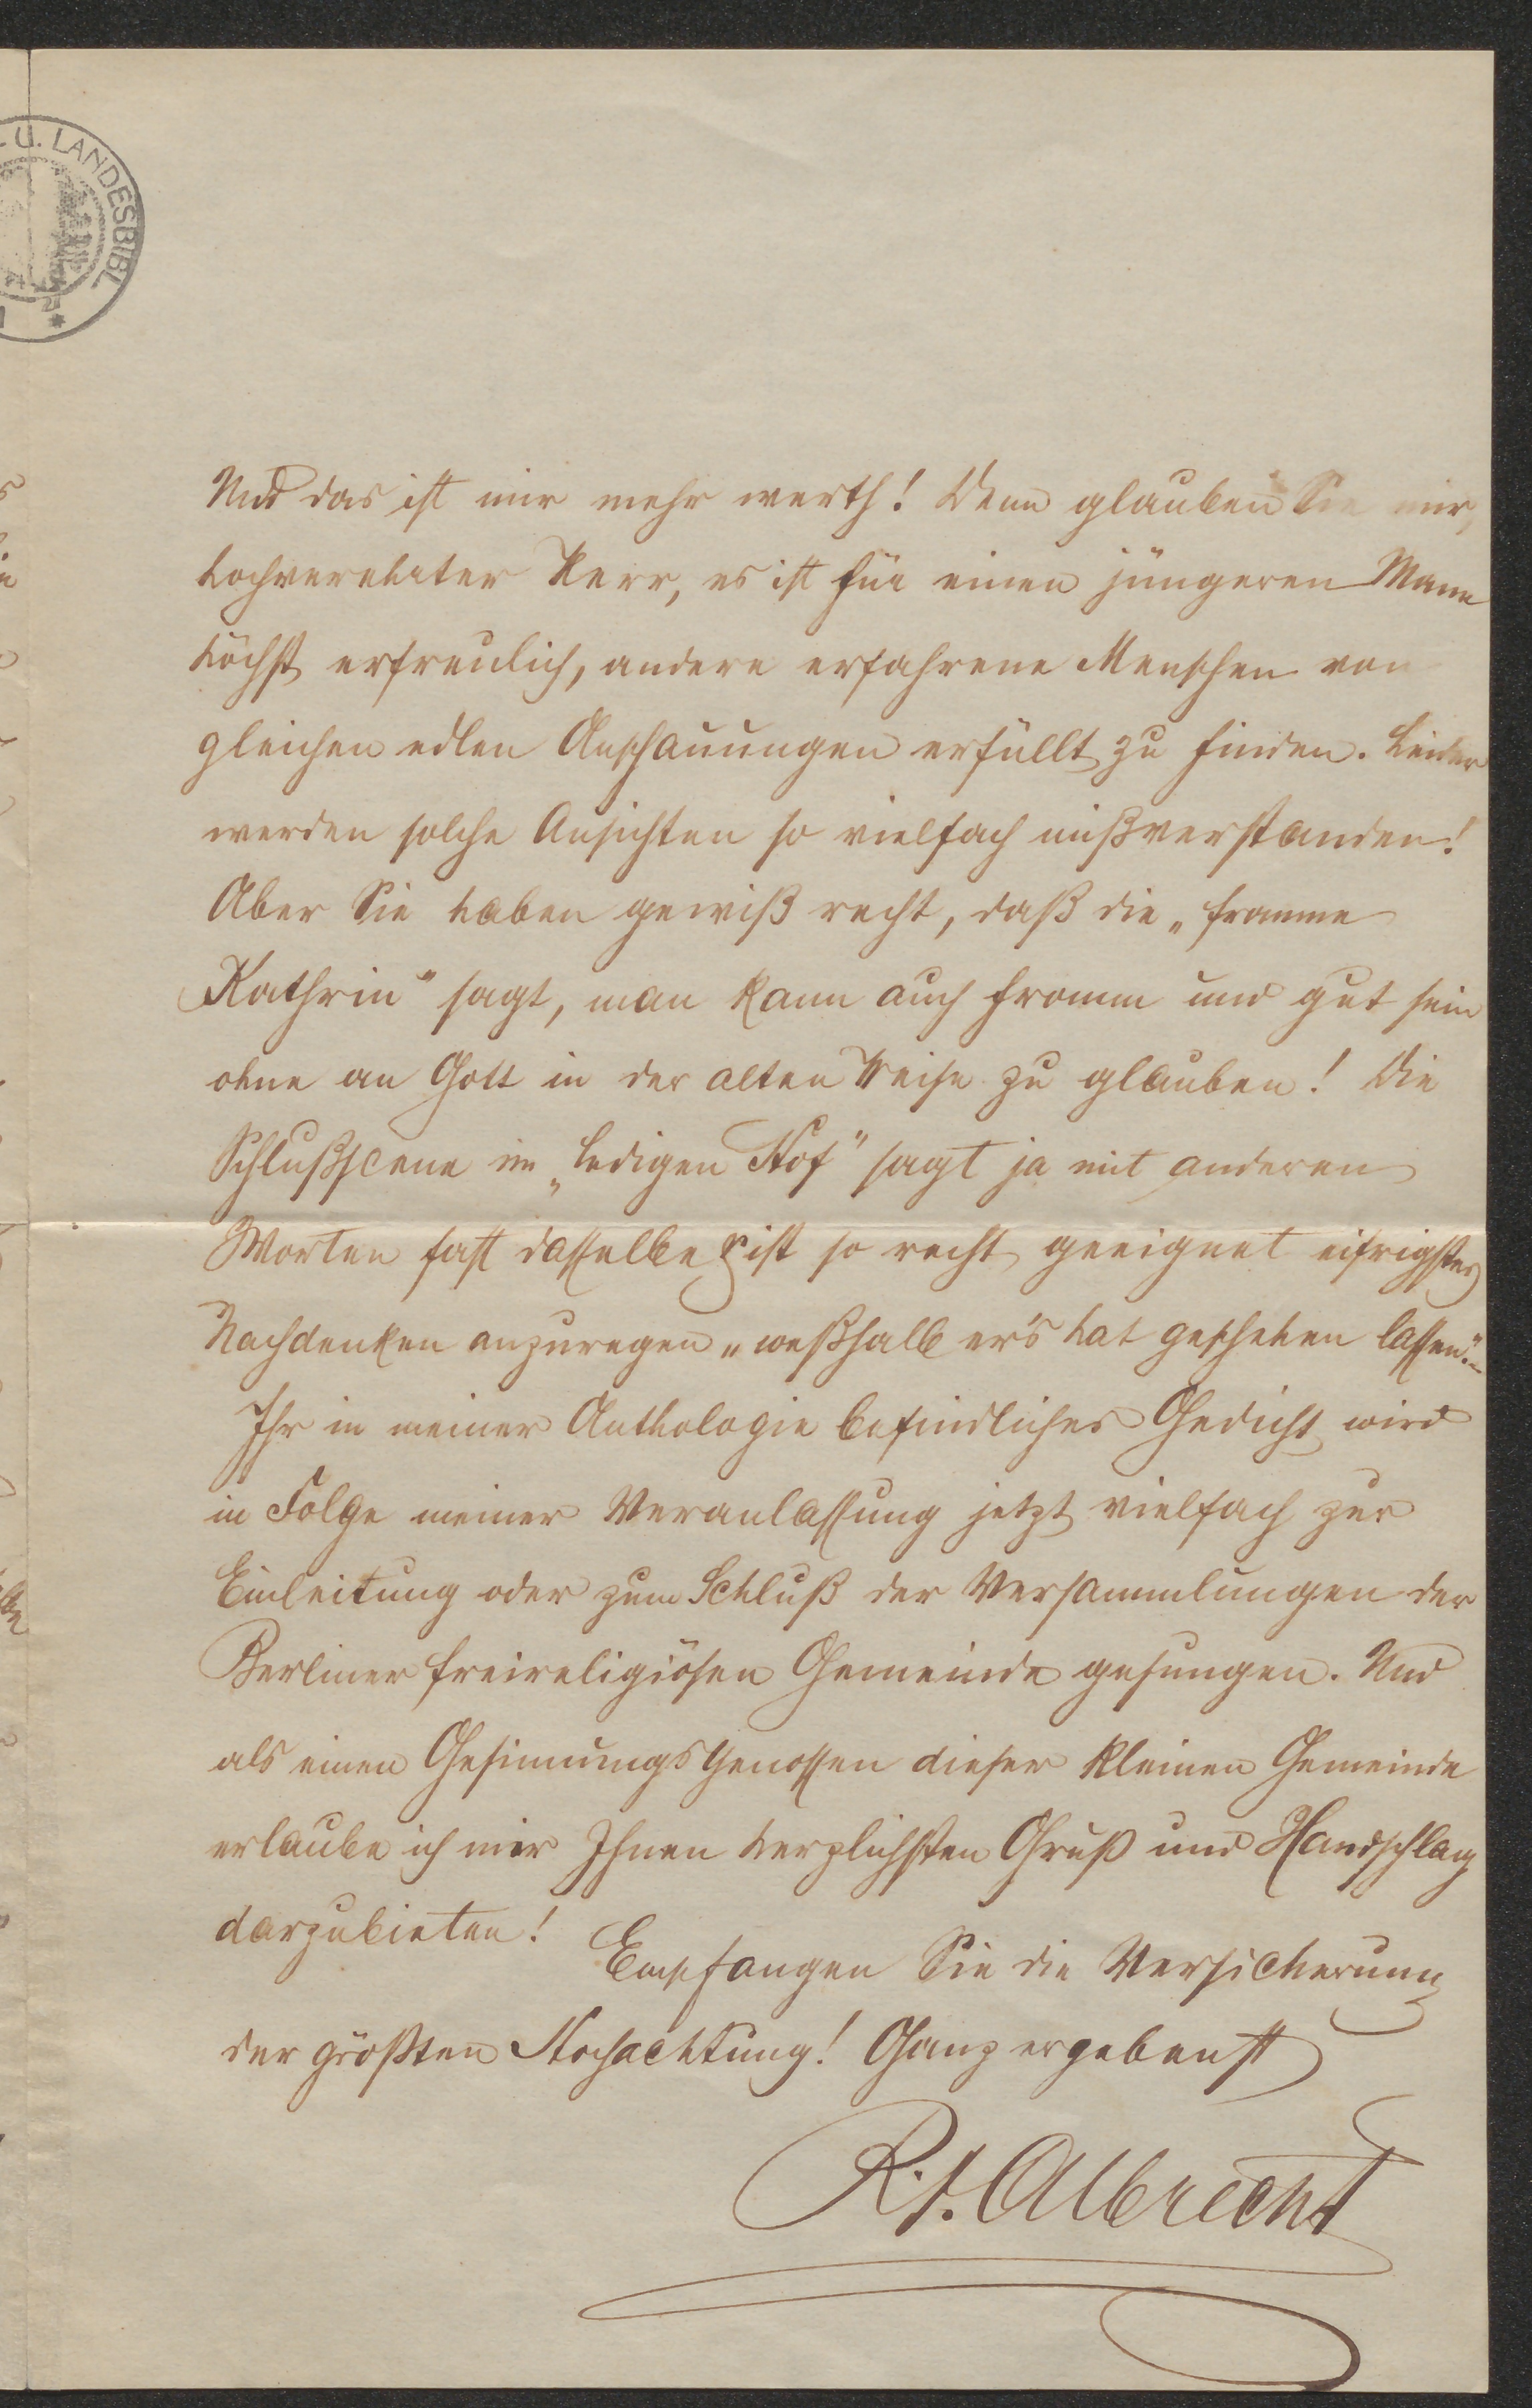 U. LANDESBIBL
Und das ist mir mehr werth! Denn glauben Sie mir,
hochverehrter Herr, es ist für einen jüngeren Mann
höchst erfreulich, andere erfahrene Menschen von
gleichen edlen Anschauungen erfüllt zu finden. Leider
werden solche Ansichten so vielfach mißverstanden!
Aber Sie haben gewiß recht, daß die „fromme
Kathrin" sagt, man kann auch fromm und gut sein
ohne an Gott in der alten Weise zu glauben! Die
Schlußscene im „ledigen Hof" sagt ja mit anderen
Worten fast dasselbe & ist so recht geeignet eifrigstes
Nachdenken anzuregen „weßhalb er's hat geschehen lassen."–
Ihr in meiner Anthologie befindliches Gedicht wird
in Folge meiner Veranlassung jetzt vielfach zur
Einleitung oder zum Schluß der Versammlungen der
Berliner freireligiösen Gemeinde gesungen. Und
als einen Gesinnungsgenossen dieser kleinen Gemeinde
erlaube ich mir Ihnen herzlichsten Gruß und Handschlag
darzubieten!
Empfangen Sie die Versicherung
der größten Hochachtung! Ganz ergebenst
Albrecht